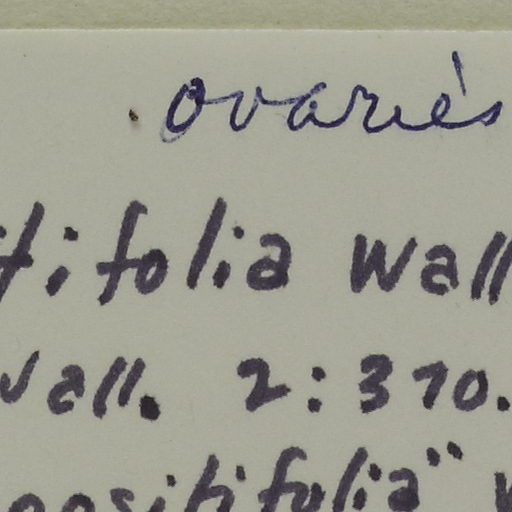 ovaries
tifolia Wall
Wall. 2:370.
positifolia"